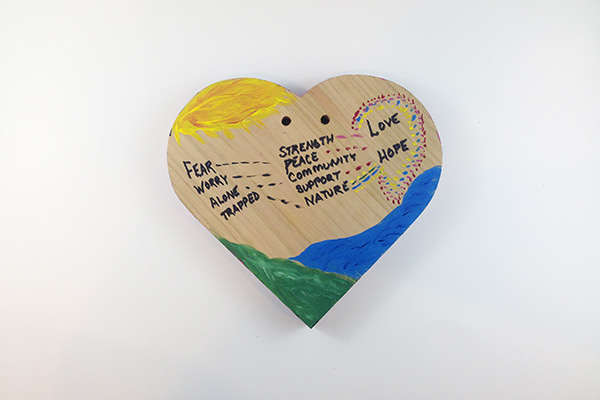 FEAR
WORRY
ALONE
TRAPPED
STRENGTH
PEACE
COMMUNITY
SUPPORT
NATURE
LOVE
HOPE